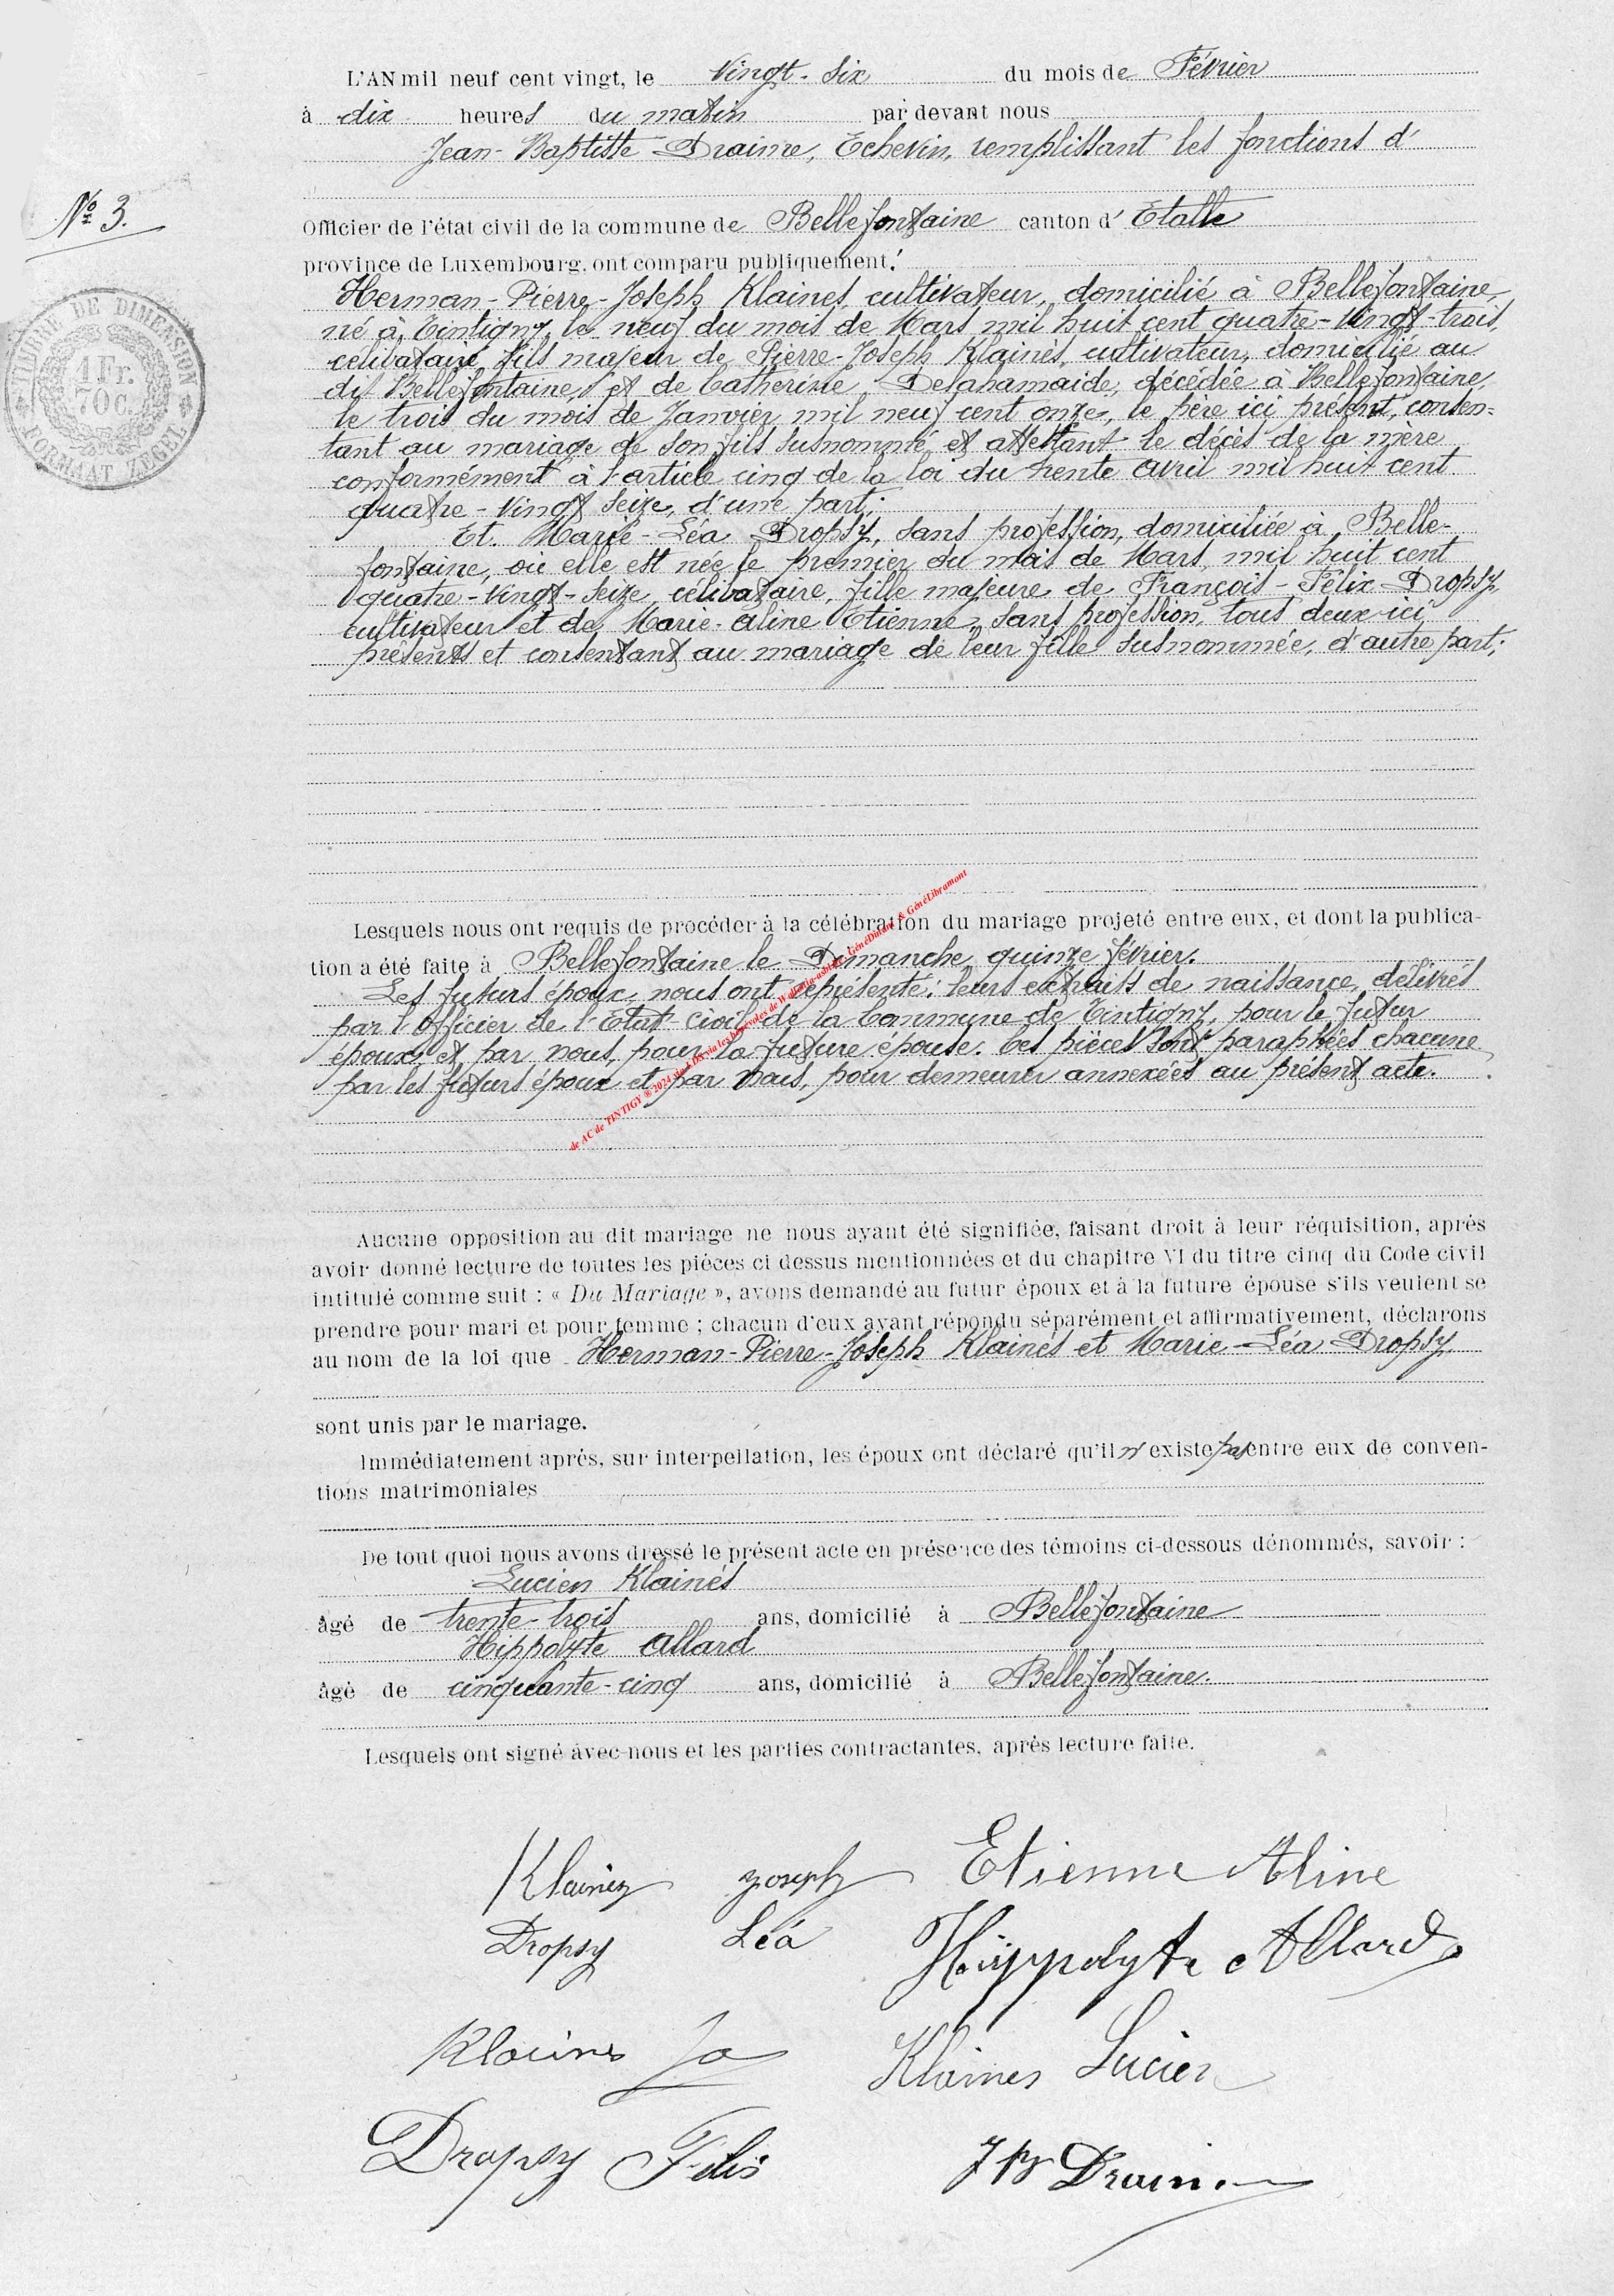 L'AN mil neuf cent vingt, le Vingt-Six du mois de Février
à dix heures du matin par devant nous
Jean-Baptiste Draime, Echevin, remplissant les fonctions d'
N° 3.
Officier de l'état civil de la commune de Bellefontaine canton d' Etalle
province de Luxembourg, ont comparu publiquement:
Herman-Pierre-Joseph Klainés, cultivateur, domicilié à Bellefontaine,
né à Tintigny, le neuf du mois de Mars mil huit cent quatre-Vingt-trois,
célibataire, fils majeur de Pierre-Joseph Klainés, cultivateur, domicilié au
dit Bellefontaine, et de Catherine Delahamaide, décédée à Bellefontaine,
le trois du mois de Janvier mil neuf cent onze, le père ici présent, consen=
tant au mariage de son fils susnommé et attestant le décès de la mère
conformément à l'article cinq de la loi du trente avril mil huit cent
quatre-Vingt Seize, d'une part;
TIMBRE DE DIMENSION
1 Fr.
70 C.
FORMAAT ZEGEL
Et Marie-Léa Dropsy, sans profession, domiciliée à Belle-
fontaine, où elle est née le premier du mois de Mars mil huit cent
quatre-Vingt-Seize, célibataire, fille majeure de François-Félix Dropsy,
cultivateur et de Marie-Aline Etienne, sans profession, tous deux ici
présents et consentant au mariage de leur fille susnommée, d'autre part;
Lesquels nous ont requis de procéder à la célébration du mariage projeté entre eux, et dont la publica-
tion a été faite à Bellefontaine le Dimanche quinze février.
Les futurs époux nous ont représenté: leurs extraits de naissance, délivrés
par l'Officier de l'Etat-Civil de la Commune de Tintigny, pour le futur
époux, et par nous, pour la future épouse. Ces pièces sont paraphées chacune
par les futurs époux et par nous, pour demeurer annexées au présent acte.
de AC de TINTIGY ® 2024 via les bénévoles de Wallonia-asbl GénéDinant & GénéLibramont
Aucune opposition au dit mariage ne nous ayant été signifiée, faisant droit à leur réquisition, après
avoir donné lecture de toutes les pièces ci dessus mentionnées et du chapitre VI du titre cinq du Code civil
intitulé comme suit : « Du Mariage », avons demandé au futur époux et à la future épouse s'ils veulent se
prendre pour mari et pour femme ; chacun d'eux ayant répondu séparément et affirmativement, déclarons
au nom de la loi que Herman-Pierre-Joseph Klainés et Marie-Léa Dropsy
sont unis par le mariage.
Immédiatement après, sur interpellation, les époux ont déclaré qu'il n'existe pas entre eux de conven-
tions matrimoniales
De tout quoi nous avons dressé le présent acte en présence des témoins ci-dessous dénommés, savoir :
Lucien Klainés
âgé de trente-trois ans, domicilié à Bellefontaine
Hippolyte Allard
âgé de cinquante-cinq ans, domicilié à Bellefontaine.
Lesquels ont signé avec nous et les parties contractantes, après lecture faite.
Klainez Joseph Etienne Aline
Dropsy Léa Hippolyte Allard
Klaines Jo Klaines Lucien
Dropsy Félix JB Draime